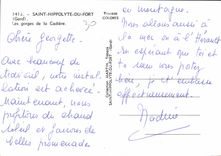 341z. - SAINT-HIPPOLYTE-DU-FORT
(Gard).
Les gorges de la Cadière.
30
Chère Georgette
Avec beaucoup de
travail, notre instal-
lation est achevée.
Maintenant, nous
profitons du chaud
soleil et faisons de
belles promenades
en montagne.
Nous allons aussi à
la mer ou à l'Hérault
En espérant que toi et
ta sœur vous portez
bien, je t'embrasse
affectueusement.
Nadine